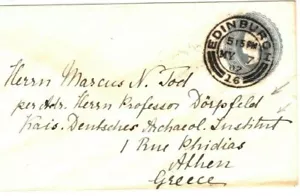 EDINBURGH
5 15 PM
MY 7
02
16
Herrn Marcus N. Tod
per Adr. Herrn Professor Dörpfeld
Kais. Deutsches Archaeol. Institut
1 Rue Phidias
Athen
Greece